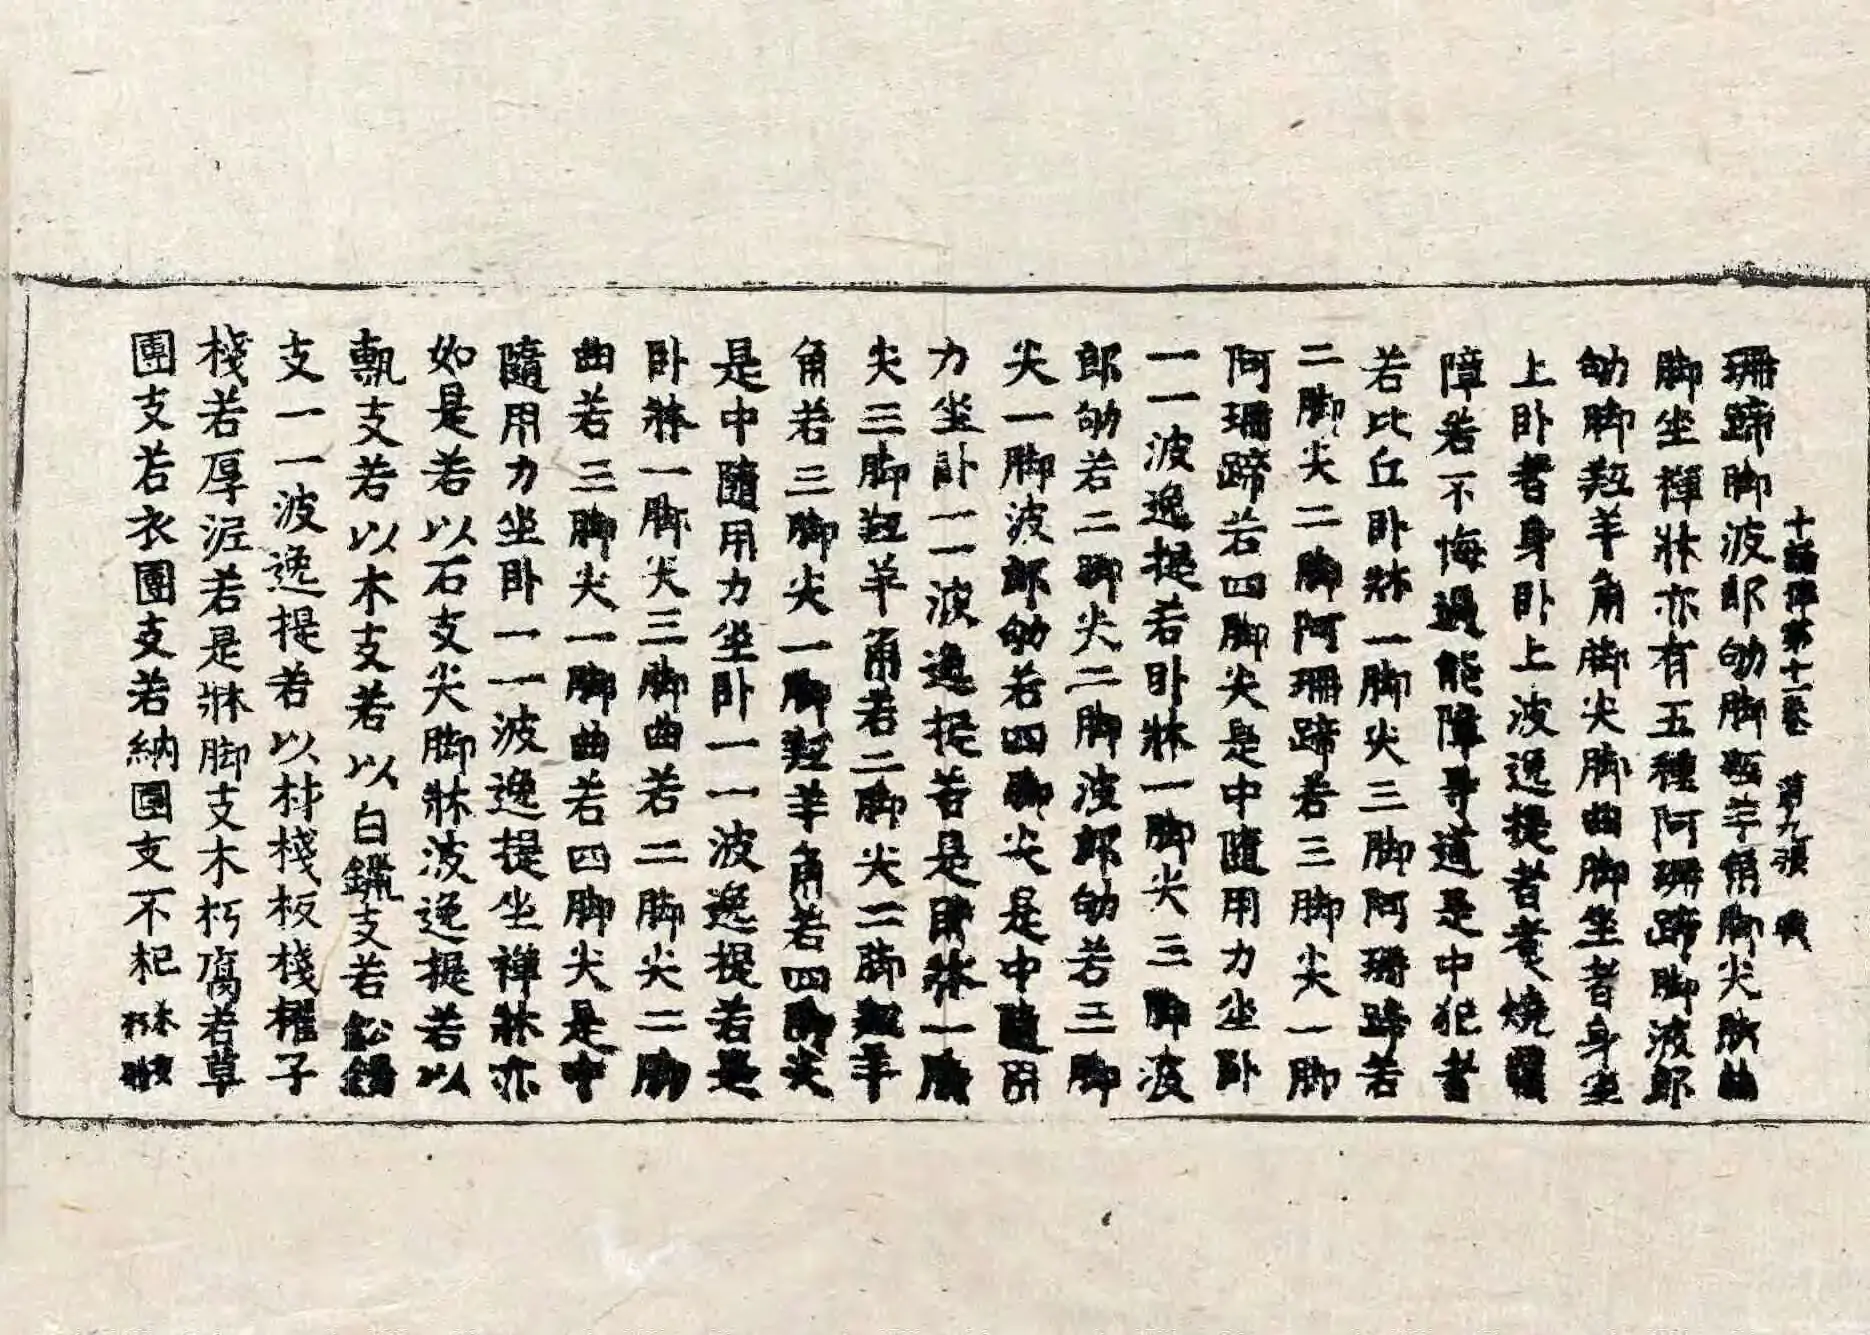 十誦律第十一卷 第九張
珊蹄脚波郎劬脚羖羊角脚尖脚曲
脚坐禪牀亦有五種阿珊蹄脚波郎
劬脚羖羊角脚尖脚曲脚坐者身坐
上卧者身卧上波逸提者煑燒覆
障若不悔過能障㝵道是中犯者
若比丘卧牀一脚尖三脚阿珊蹄若
二脚尖二脚阿珊蹄若三脚尖一脚
阿珊蹄若四脚尖是中隨用力坐卧
一一波逸提若卧牀一脚尖三脚波
郎劬若二脚尖二脚波郎劬若三脚
尖一脚波郎劬若四脚尖是中隨用
力坐卧一一波逸提若是卧牀一脚
尖三脚羖羊角若二脚尖二脚羖羊
角若三脚尖一脚羖羊角若四脚尖
是中隨用力坐卧一一波逸提若是
卧牀一脚尖三脚曲若二脚尖二脚
曲若三脚尖一脚曲若四脚尖是中
隨用力坐卧一一波逸提坐禪牀亦
如是若以石支尖脚牀波逸提若以
甎支若以木支若以白鑞支若鈆錫
支一一波逸提若以材棧板棧櫂子
棧若厚泥若是牀脚支木朽腐若草
團支若衣團支若納團支不犯